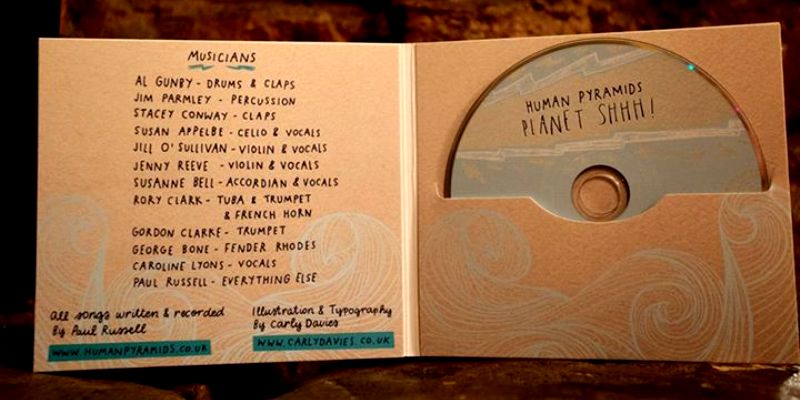 MUSICIANS
AL GUNBY - DRUMS & CLAPS
JIM PARMLEY - PERCUSSION
STACEY CONWAY - CLAPS
SUSAN APPELBE - CELLO & VOCALS
JILL O'SULLIVAN - VIOLIN & VOCALS
JENNY REEVE - VIOLIN & VOCALS
SUSANNE BELL - ACCORDIAN & VOCALS
RORY CLARK - TUBA & TRUMPET
& FRENCH HORN
GORDON CLARKE - TRUMPET
GEORGE BONE - FENDER RHODES
CAROLINE LYONS - VOCALS
PAUL RUSSELL - EVERYTHING ELSE
All songs written & recorded
By Paul Russell
WWW.HUMANPYRAMIDS.CO.UK
Illustration & Typography
By Carly Davies
WWW.CARLYDAVIES.CO.UK
HUMAN PYRAMIDS
PLANET SHHH!